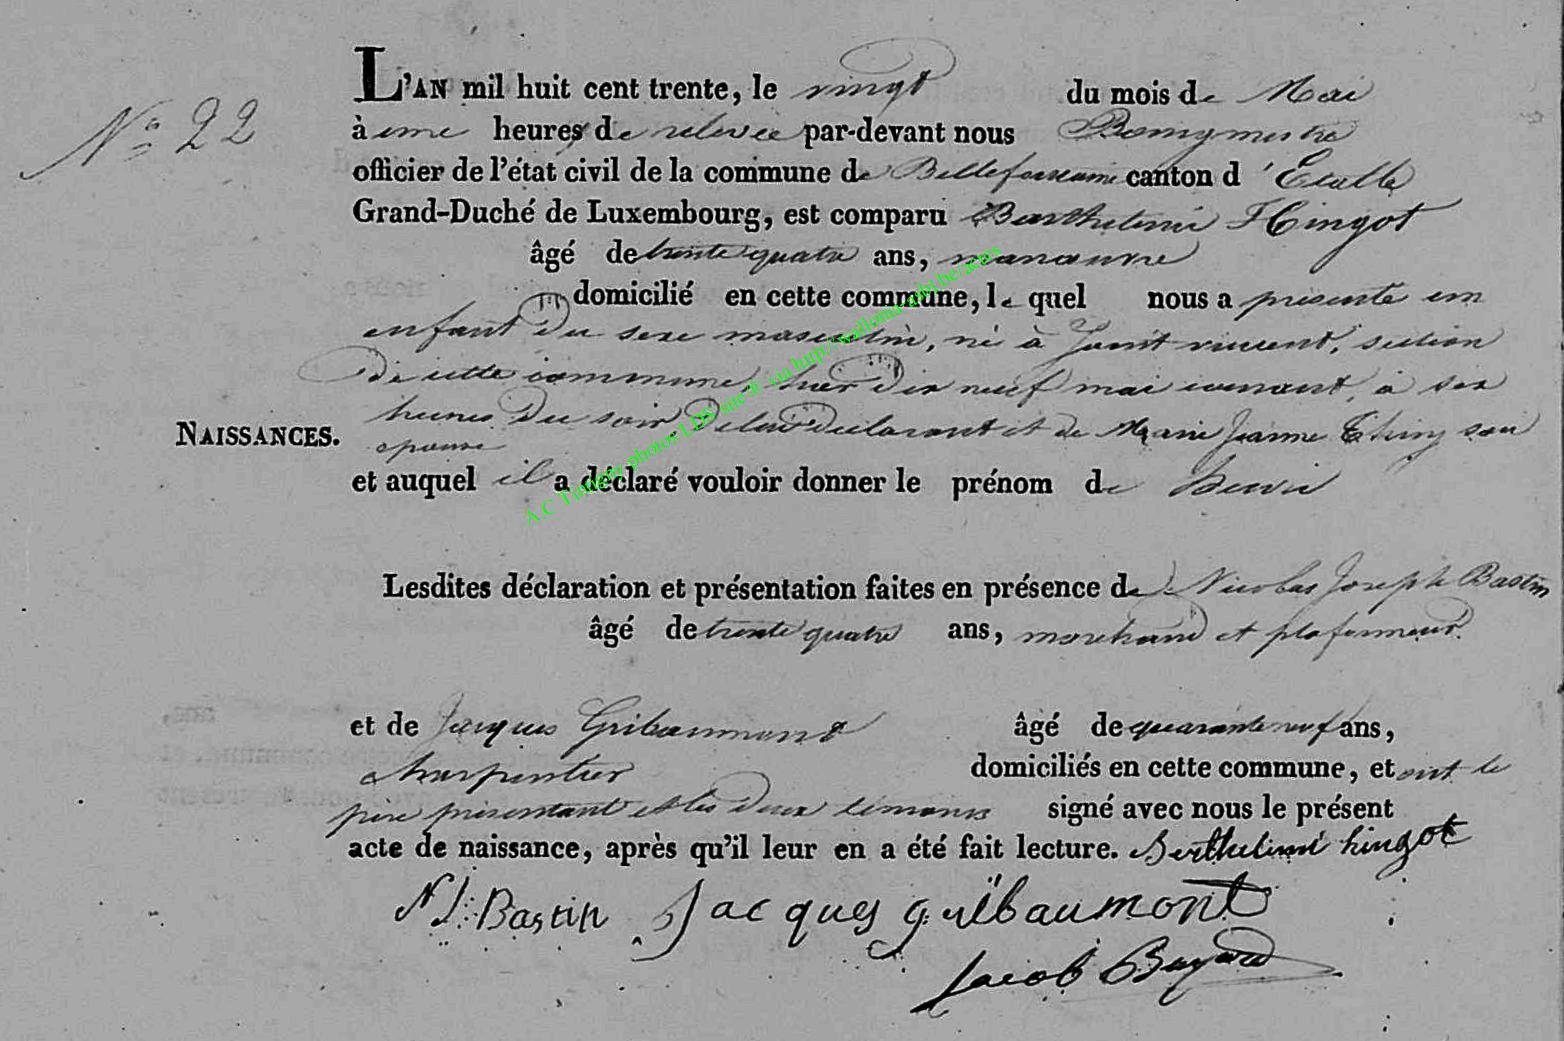 L'AN mil huit cent trente, le vingt du mois de Mai
N° 22
à une heure de relevée par-devant nous Bourgmestre
officier de l'état civil de la commune de Bellefontaine canton d'Etalle
Grand-Duché de Luxembourg, est comparu Barthelemi Hingot
âgé de trente quatre ans, manoeuvre
domicilié en cette commune, le quel nous a présenté un
enfant du sexe masculin, né à Saint vincent, section
de cette commune, hier dix neuf mai courant, à six
heures du soir, de lui déclarant et de Marie Jeanne son
NAISSANCES.
épouse
et auquel il a déclaré vouloir donner le prénom de Henri
A.C. Tintigny photos LDS site 9. via http:/
Lesdites déclaration et présentation faites en présence de Nicolas Joseph Bastin
âgé de trente quatre ans, marchand et plafonneur
et de Jacques Gribaumont âgé de quarante neuf ans,
charpentier domiciliés en cette commune, et ont le
père présentant et les deux témoins signé avec nous le présent
acte de naissance, après qu'il leur en a été fait lecture. Berthelemi hingot
N J: Bastin Jacques gribaumont
Jacob